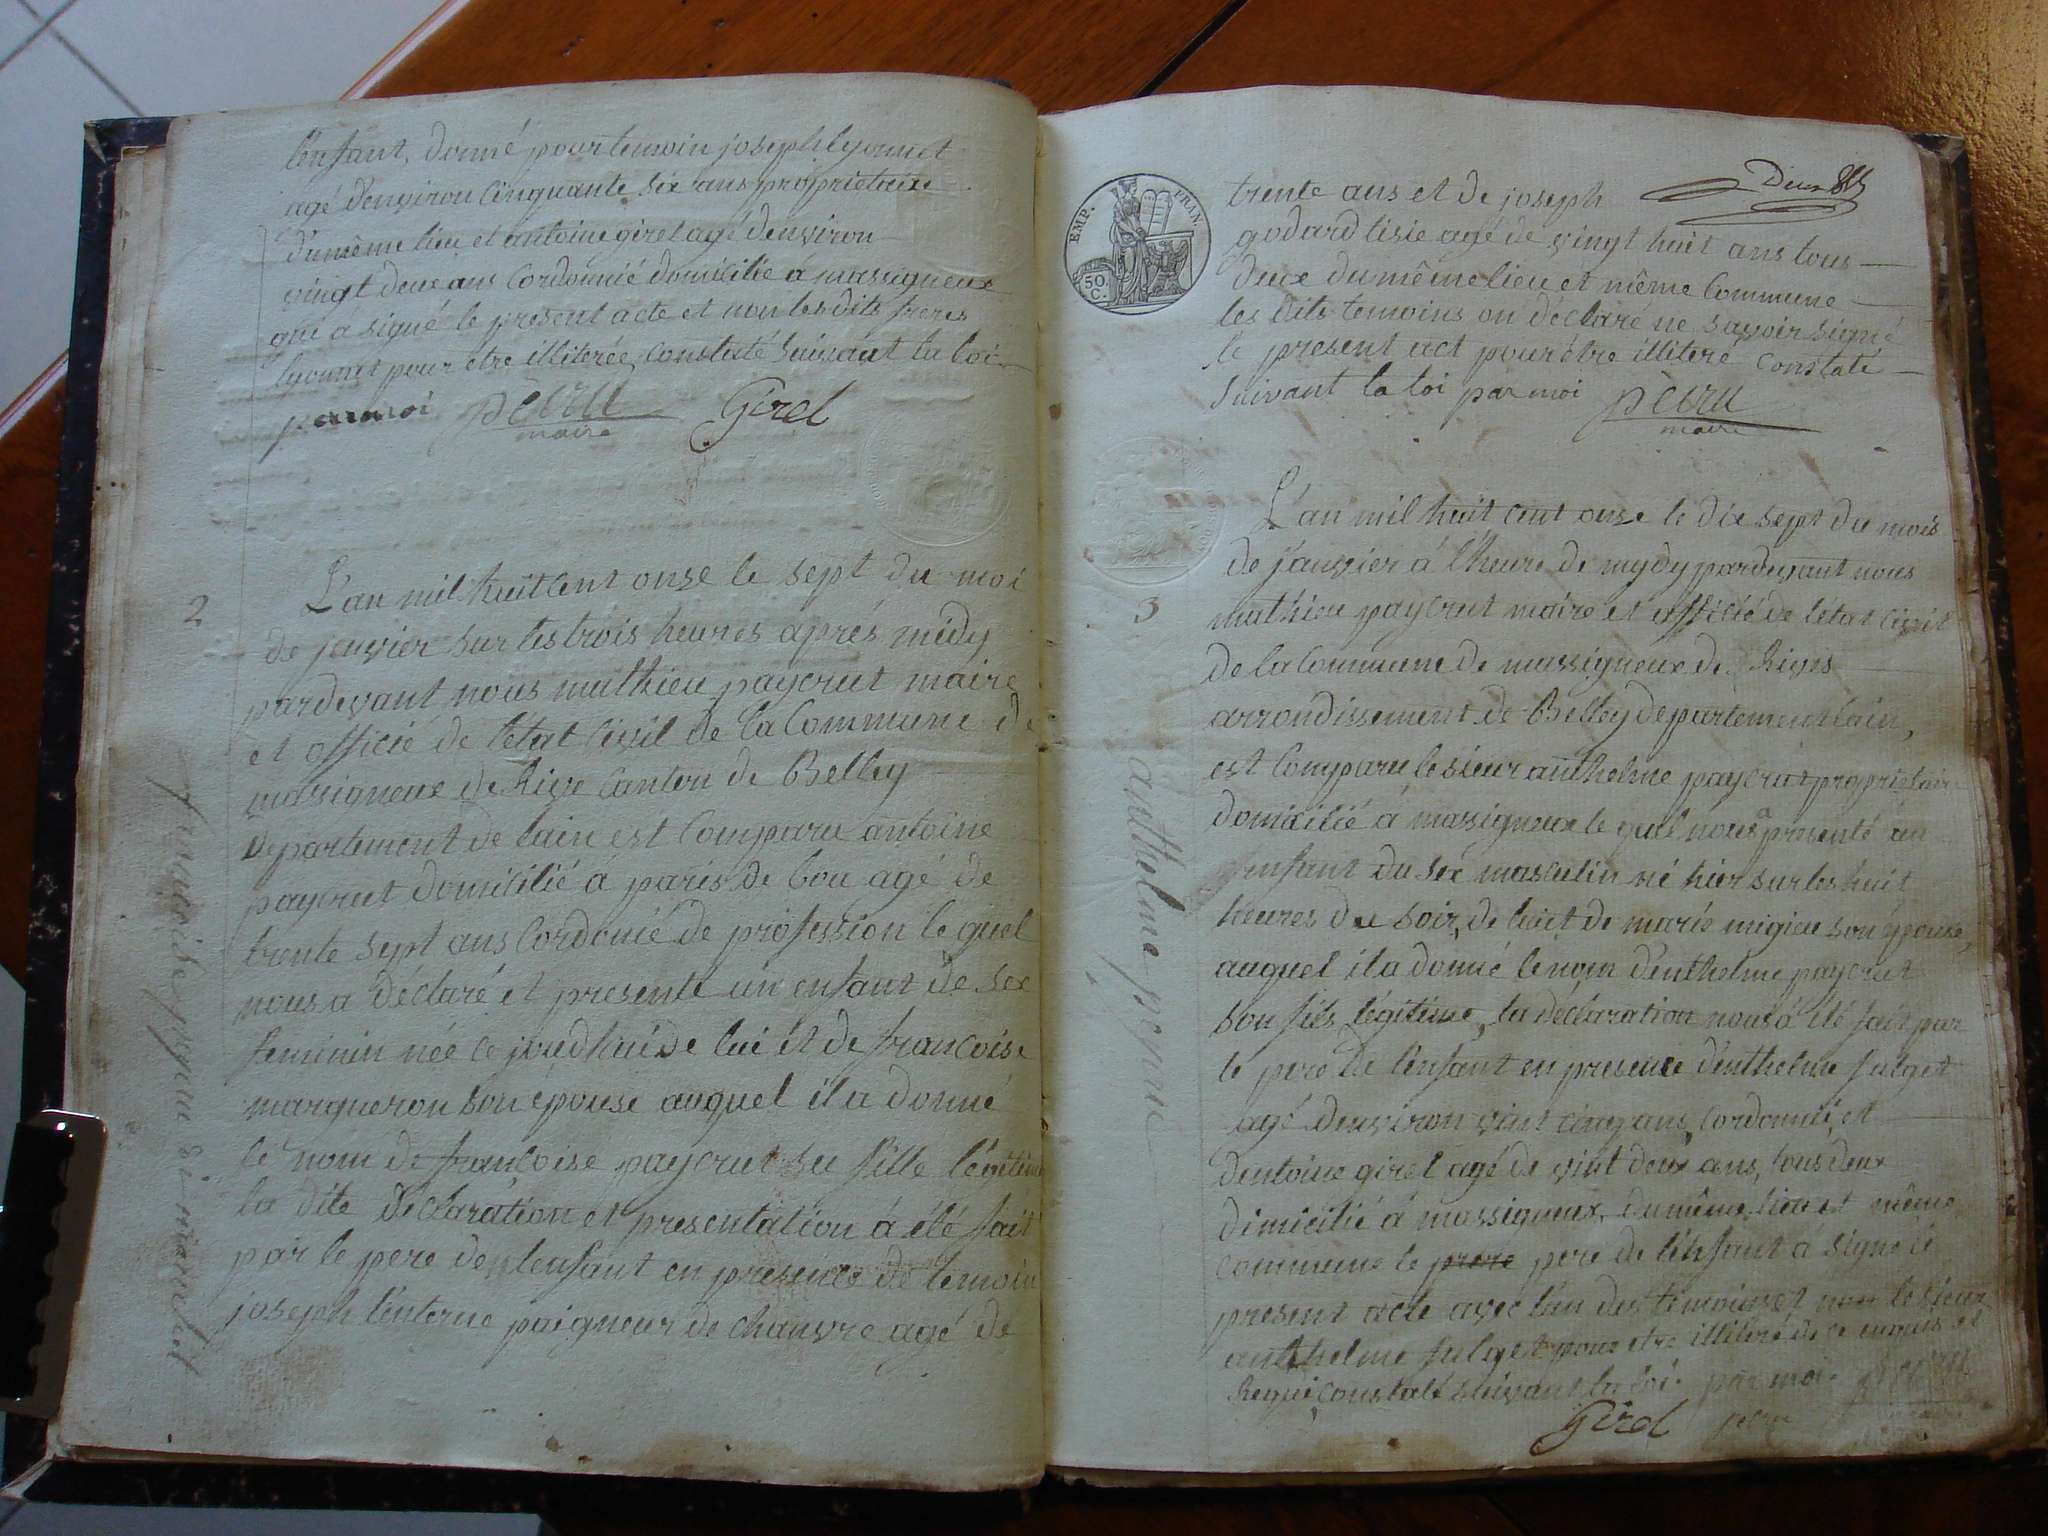 l'enfant, donné pour temoin joseph lyonnet
agé d'environ cinquante six ans propriétaire
du même lieu et antoine girel agé d'environ
vingt deux ans Cordonnié domicilié a massigneux
qui á signé le present acte et non les dits freres
lyonnet pour etre illiterée, constaté suivant la loi
par moi peiru Girel
maire
2
L'an mil huit Cent onze le sept du moi
de jenvier sur les trois heures après midy
pardevant nous mathieu paycrut maire
et officié de l'état Civil de la Commune de
masigneux de Rive Canton de Belley
Departement de lain est Comparu antoine
paycrut domicilié á paris de bou agé de
trente sept ans Cordonié de profession le quel
nous a déclaré et presenté un enfant de sex
feminin née ce de lui et de francoise
margueron son epouse auquel il a donné
le nom de francoise paycrut sa fille légitime
la dite déclaration et presentation á été fait
par le pere de l'enfant en presence de temoin
joseph paigneur de chanvre agé de
EMP. FRAN.
50.
C.
trente ans et de joseph
godard tisie agé de vingt huit ans tous
deux du même lieu et même Commune
les dits temoins on déclaré ne savoir signé
le present act pour être illiteré Constaté
suivant la loi par moi peiru
maire
3
anthelme peyru
L'an mil huit cent onze le dix sept du mois
de janvier á l'heure de mydy pardevant nous
mathieu paycrut maire et officié de l'état Civil
de la Commune de massigneux de Rives
arrondissement de Belley departement lain,
est Comparu le sieur anthelme paycrut propriétaire
domicilié á masigneux le quel nous a presenté un
enfant du sex masculin né hier sur les huit
heures du soir, de luit de marie migieu son épouse,
auquel il a donné le nom d'enthelme paycrut
son fils légitime, la déclaration nous á été fait par
le pere de l'enfant en presence d'enthelme fulget
agé d'environ vint cinq ans, Cordonnié, et
d'entoine girel agé de vint deux ans, tous deux
dimicilié á massigneux, du même lieu et même
commune le prere pere de l'enfant á signé le
present acte avec l'un des témoins et non le sieur
anthelme fulget pour etre illiteré de ce enquis et
Requi, constalé suivant la loi. par moi
Girel peiru